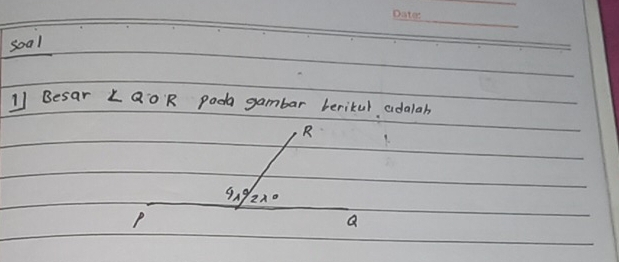 Date:
Soal
1] Besar ∠ QOR pada gambar berikut adalah
R
4x° 2x°
P Q